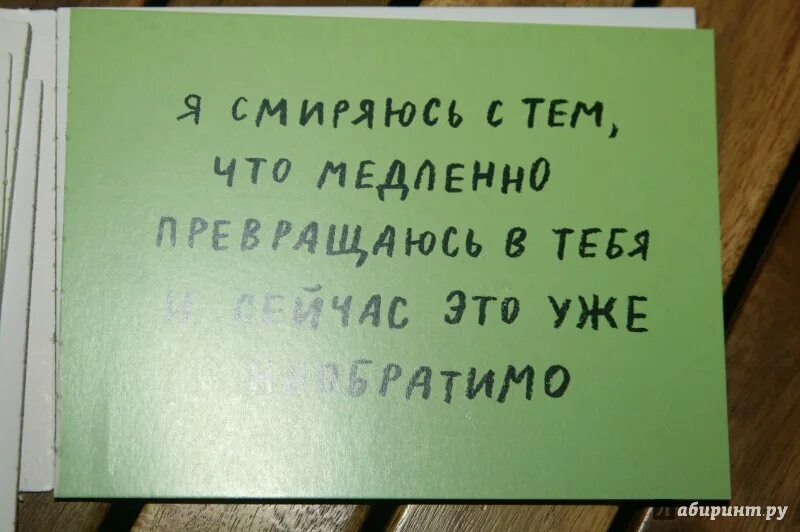 Я СМИРЯЮСЬ С ТЕМ,
ЧТО МЕДЛЕННО
ПРЕВРАЩАЮСЬ В ТЕБЯ
И СЕЙЧАС ЭТО УЖЕ
НЕОБРАТИМО
Лабиринт.ру